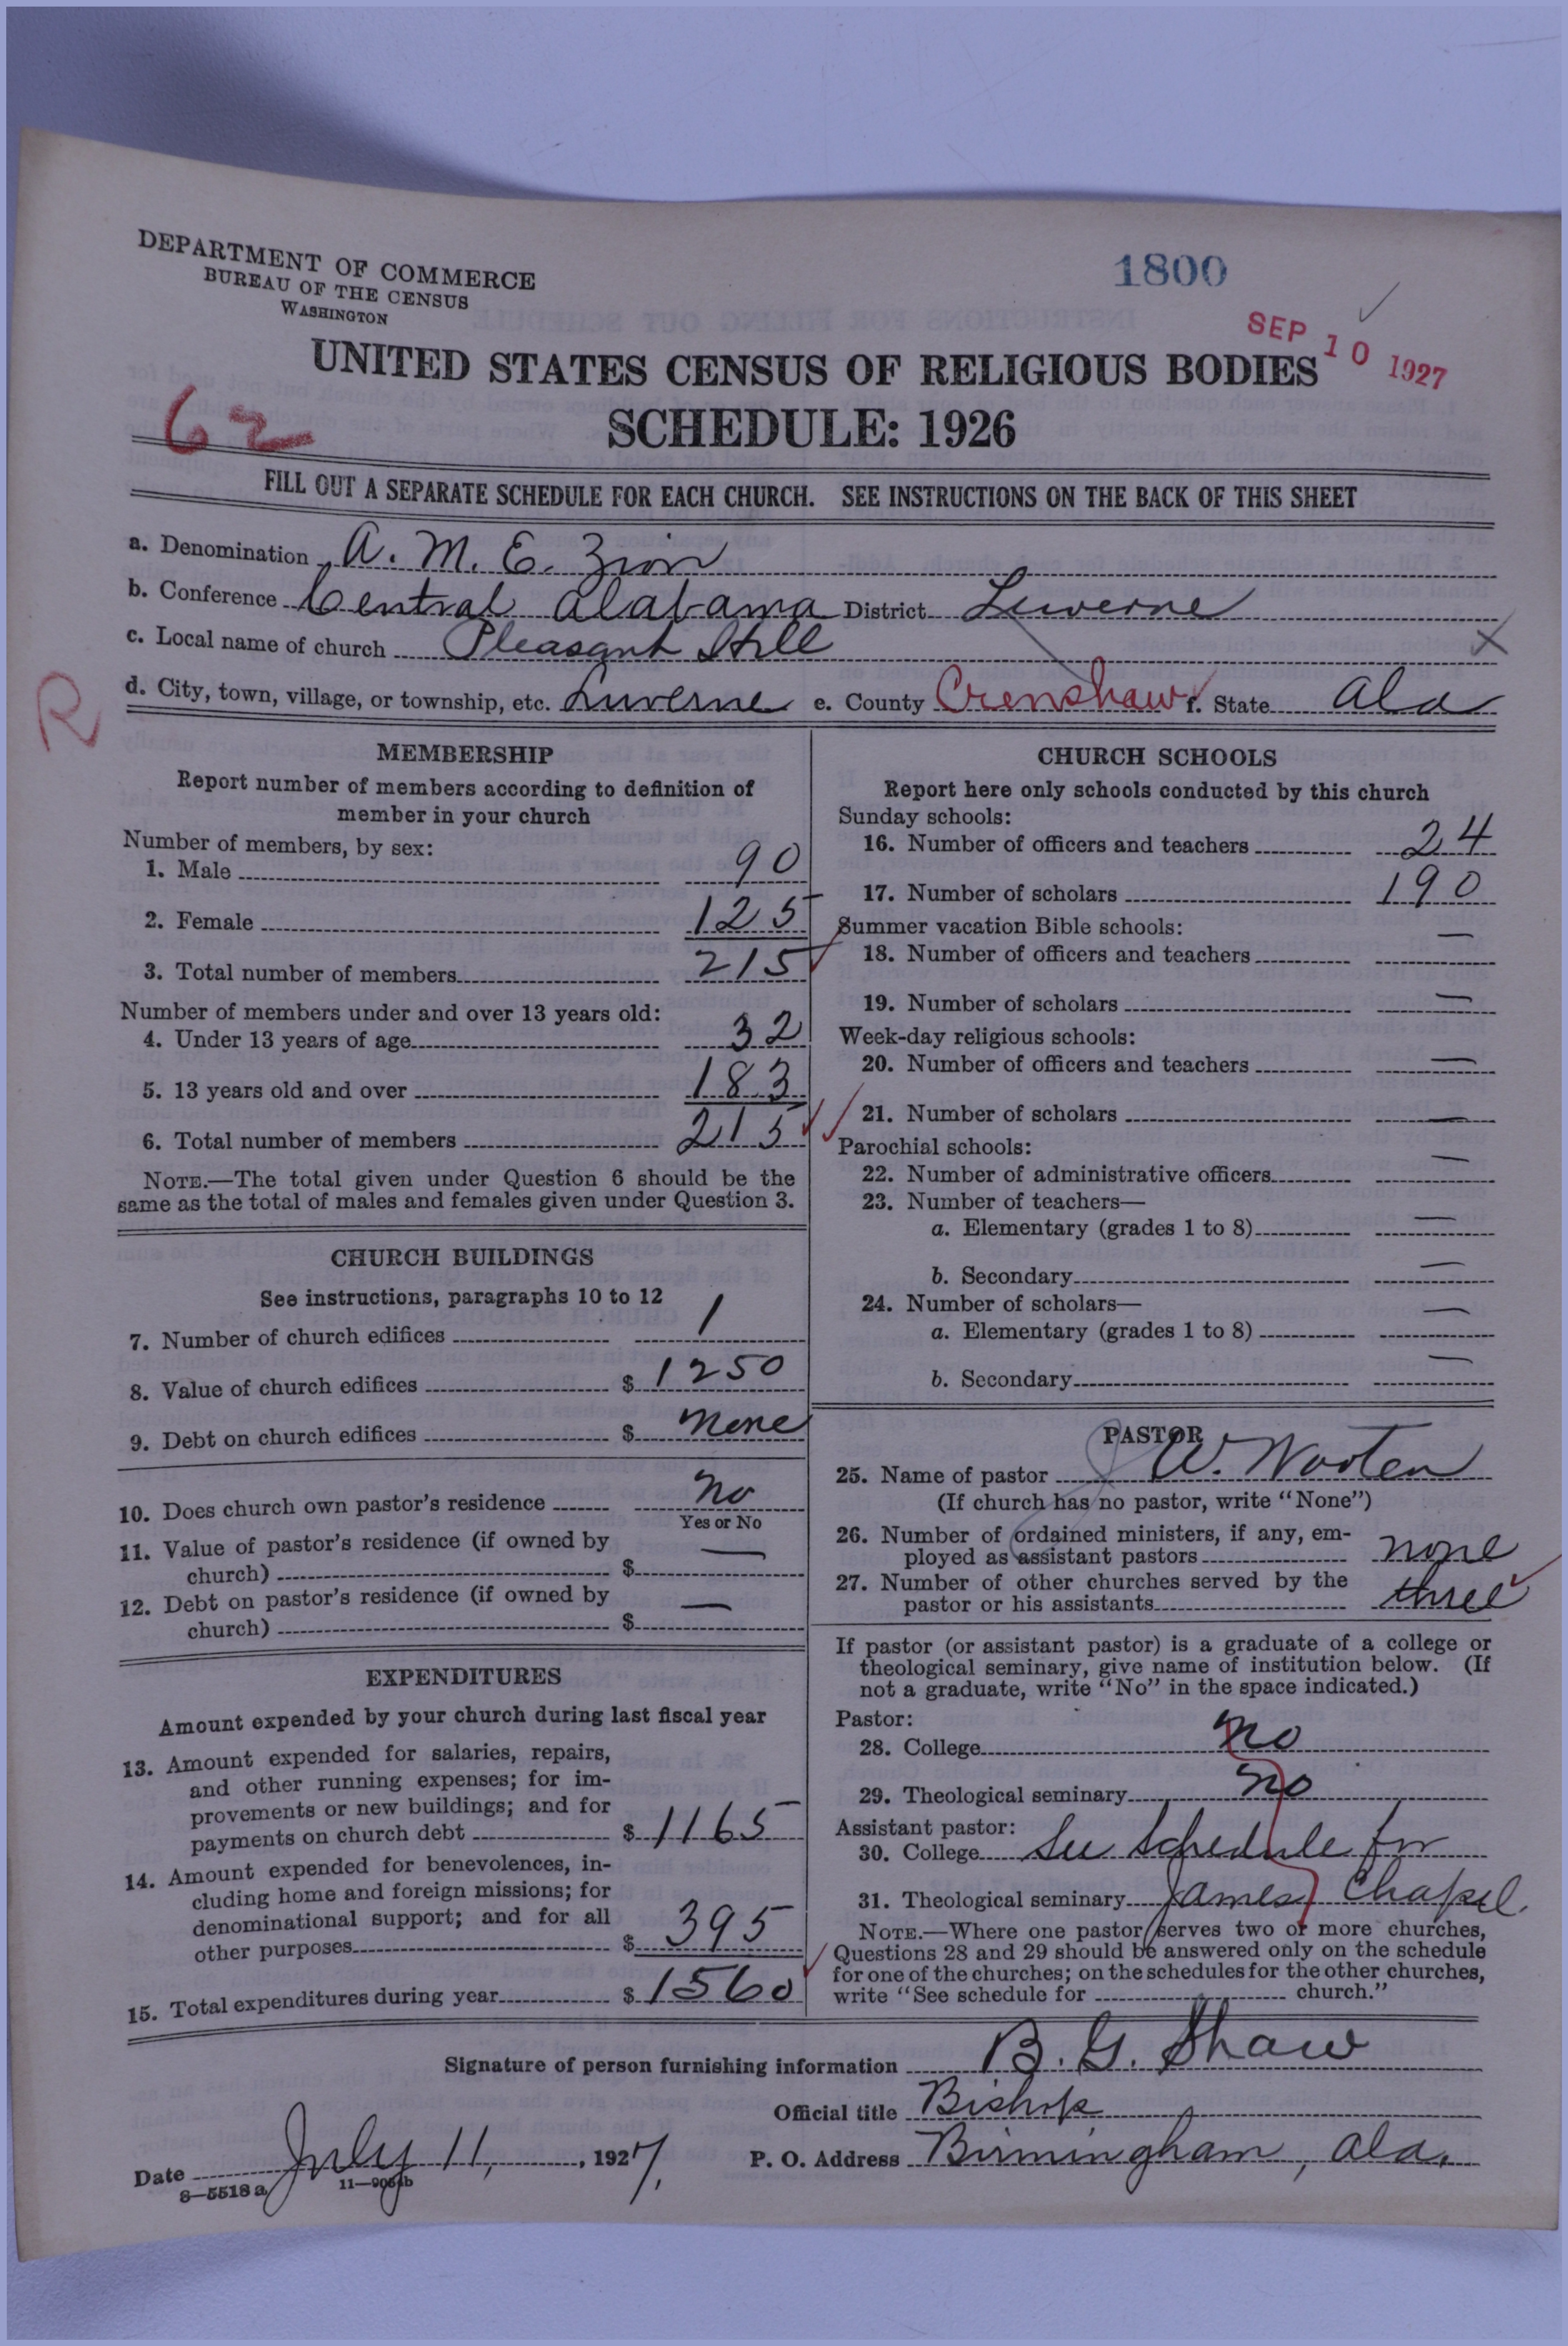 DEPARTMENT OF COMMERCE
BUREAU OF THE CENSUS
WASHINGTON
1800
SEP 10 1927
UNITED STATES CENSUS OF RELIGIOUS BODIES
SCHEDULE: 1926
62
FILL OUT A SEPARATE SCHEDULE FOR EACH CHURCH. SEE INSTRUCTIONS ON THE BACK OF THIS SHEET
a. Denomination A. M. E. Zion
b. Conference Central Alabama District Luverne
c. Local name of church Pleasant Hill X
d. City, town, village, or township, etc. Luverne e. County Crenshaw f. State Ala
R
MEMBERSHIP
Report number of members according to definition of
member in your church
Number of members, by sex:
1. Male 90
2. Female 125
3. Total number of members 215
Number of members under and over 13 years old:
4. Under 13 years of age 32
5. 13 years old and over 183
6. Total number of members 215
NOTE.—The total given under Question 6 should be the
same as the total of males and females given under Question 3.
CHURCH BUILDINGS
See instructions, paragraphs 10 to 12
7. Number of church edifices 1
8. Value of church edifices $ 1250
9. Debt on church edifices $ none
10. Does church own pastor's residence no
Yes or No
11. Value of pastor's residence (if owned by
church) $ —
12. Debt on pastor's residence (if owned by
church) $ —
EXPENDITURES
Amount expended by your church during last fiscal year
13. Amount expended for salaries, repairs,
and other running expenses; for im-
provements or new buildings; and for
payments on church debt $ 1165
14. Amount expended for benevolences, in-
cluding home and foreign missions; for
denominational support; and for all
other purposes $ 395
15. Total expenditures during year $ 1560
CHURCH SCHOOLS
Report here only schools conducted by this church
Sunday schools:
16. Number of officers and teachers 24
17. Number of scholars 190
Summer vacation Bible schools:
18. Number of officers and teachers —
19. Number of scholars —
Week-day religious schools:
20. Number of officers and teachers —
21. Number of scholars —
Parochial schools:
22. Number of administrative officers —
23. Number of teachers—
a. Elementary (grades 1 to 8) —
b. Secondary —
24. Number of scholars—
a. Elementary (grades 1 to 8) —
b. Secondary —
PASTOR
25. Name of pastor J W. Wooten
(If church has no pastor, write "None")
26. Number of ordained ministers, if any, em-
ployed as assistant pastors none
27. Number of other churches served by the
pastor or his assistants three
If pastor (or assistant pastor) is a graduate of a college or
theological seminary, give name of institution below. (If
not a graduate, write "No" in the space indicated.)
Pastor:
28. College no
29. Theological seminary no
Assistant pastor:
30. College See Schedule for
31. Theological seminary James Chapel.
NOTE.—Where one pastor serves two or more churches,
Questions 28 and 29 should be answered only on the schedule
for one of the churches; on the schedules for the other churches,
write "See schedule for church."
Signature of person furnishing information B. G. Shaw
Official title Bishop
Date July 11, 1927. P. O. Address Birmingham, Ala.
8—5518a 11—9054b